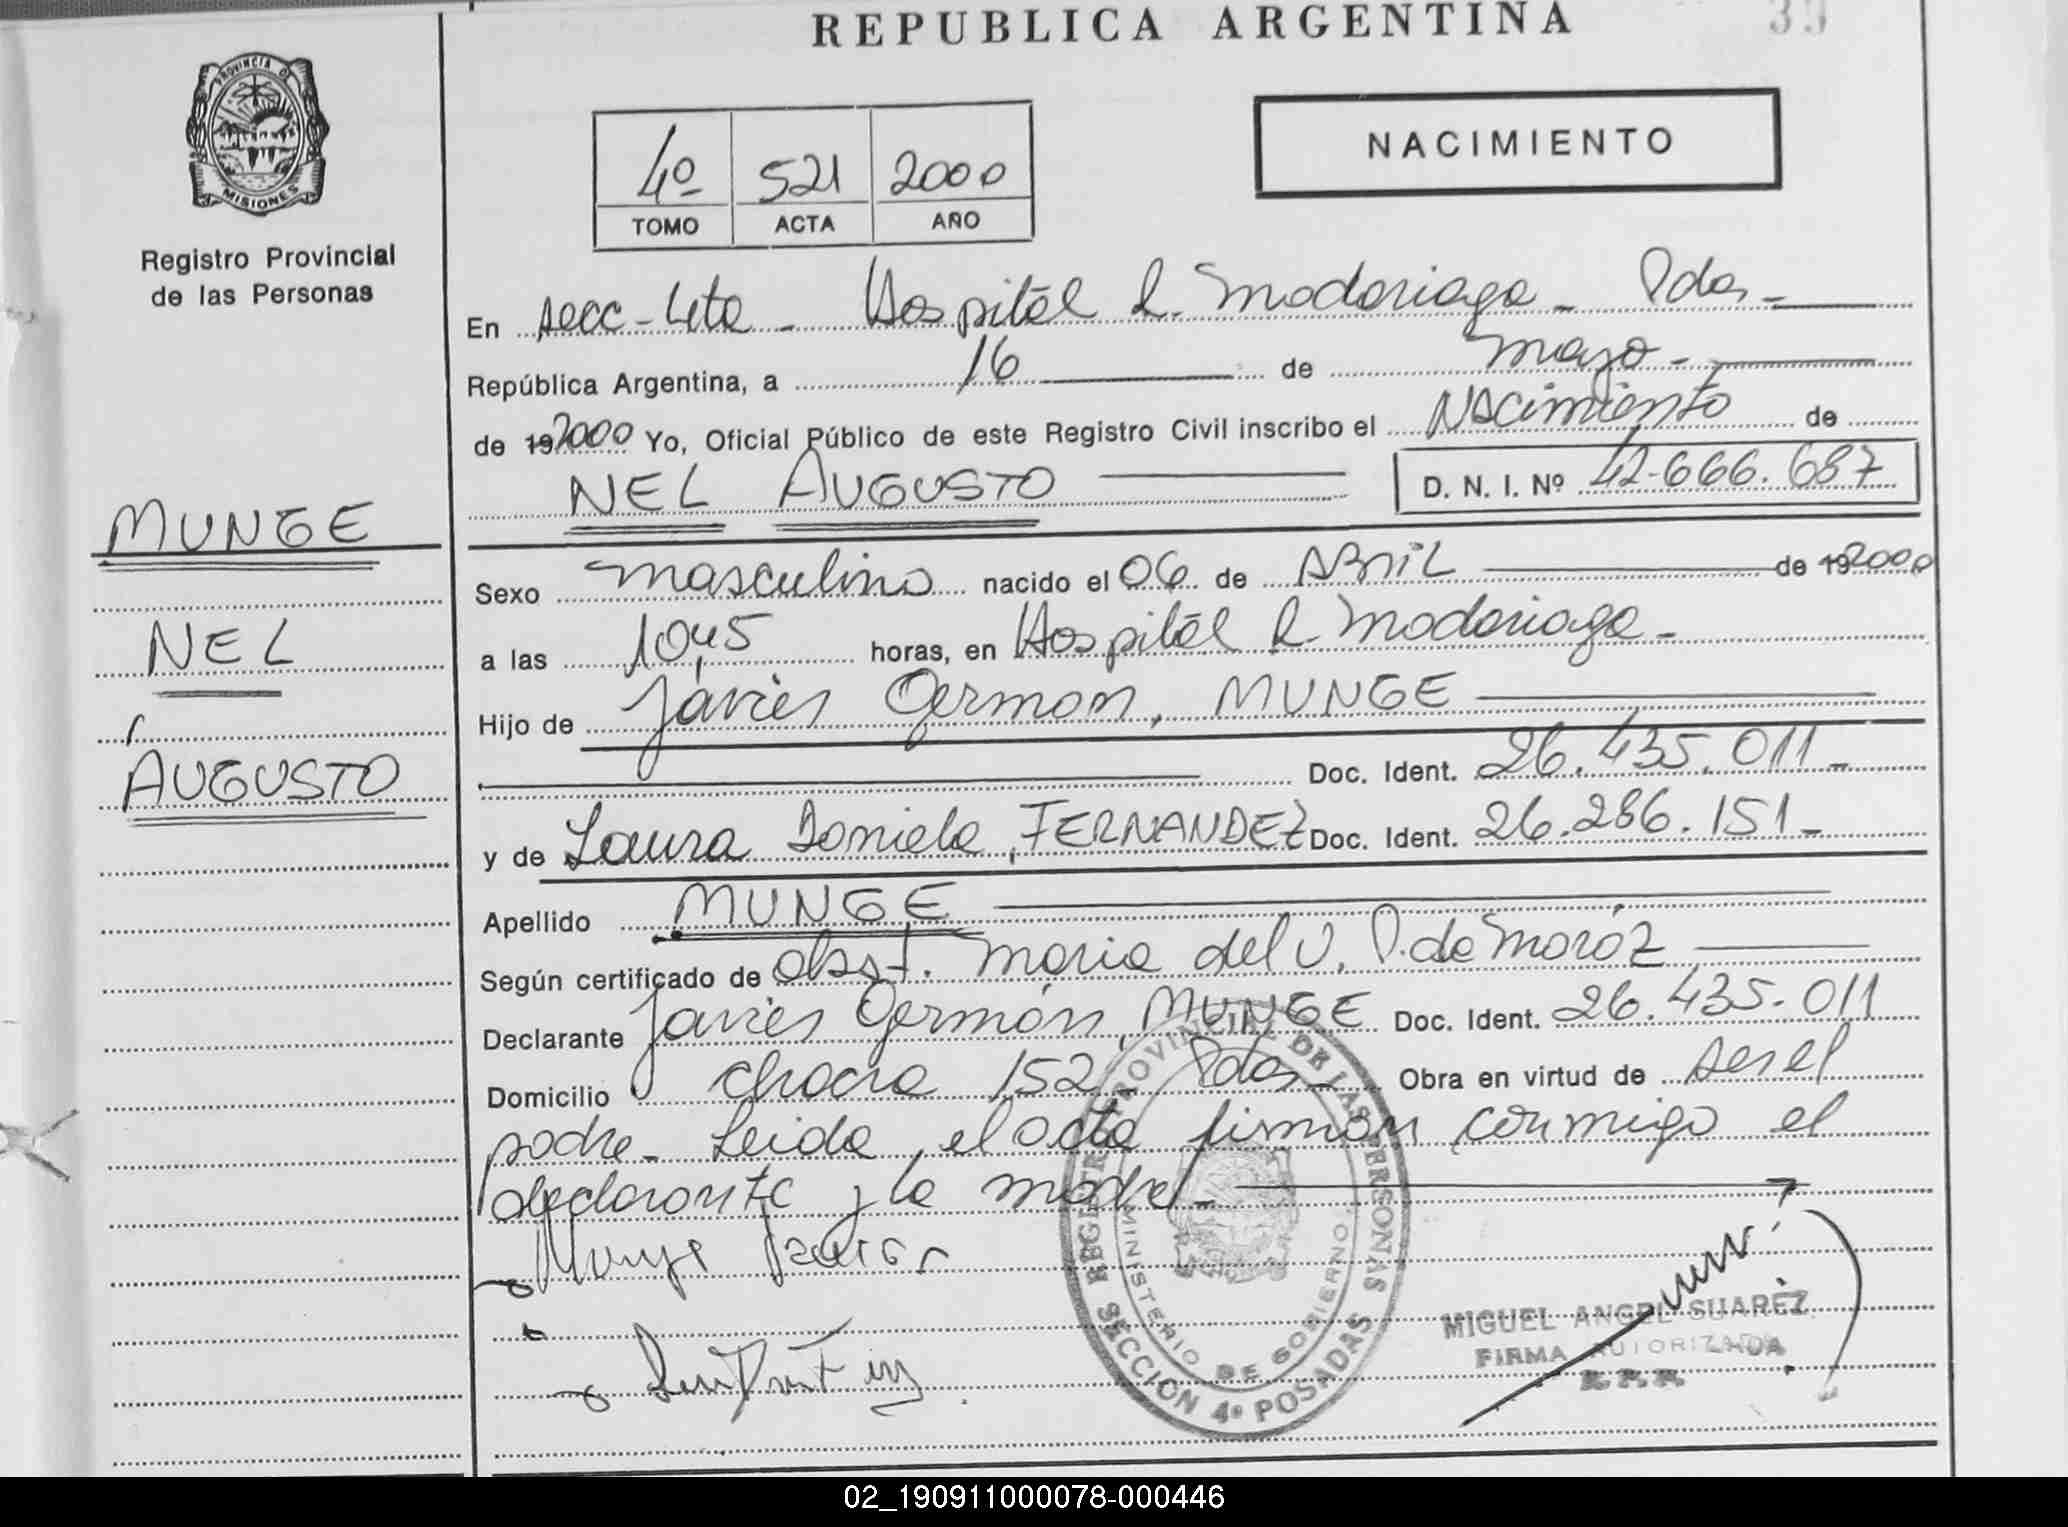 REPUBLICA ARGENTINA
39
PROVINCIA DE
MISIONES
Registro Provincial
de las Personas
4º 521 2000
TOMO ACTA AÑO
NACIMIENTO
En secc - 4ta - Hospital R. Madariaga - Pdas -
República Argentina, a 16 de mayo -
de 192000 Yo, Oficial Público de este Registro Civil inscribo el Nacimiento de
NEL AUGUSTO D. N. I. Nº 42.666.687
MUNGE
NEL
AUGUSTO
Sexo masculino nacido el 06 de Abril de 192000
a las 10,45 horas, en Hospital R. Madariaga -
Hijo de Javier German, MUNGE
Doc. Ident. 26.435.011 -
y de Laura Daniela, FERNANDEZ Doc. Ident. 26.286.151 -
Apellido MUNGE
Según certificado de obst. Maria del V. P. de Moróz
Declarante Javier Germán, MUNGE Doc. Ident. 26.435.011
Domicilio chacra 152 Pdas - Obra en virtud de ser el
padre - Leida el acta firman conmigo el
declarante y la madre -
Munge Javier
REGISTRO PROVINCIAL DE LAS PERSONAS
MINISTERIO DE GOBIERNO
SECCIÓN 4º POSADAS
MIGUEL ANGEL SUAREZ
FIRMA AUTORIZADA
R. P. P.
02_190911000078-000446